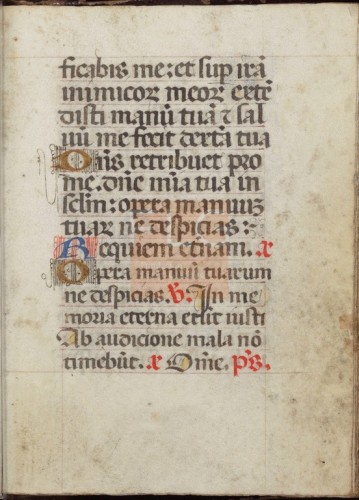 ficabis me: et sup irã
inimicoꝝ meoꝝ extẽ
disti manũ tuã ⁊ sal
uũ me fecit dextã tua
Dñs retribuet pro
me. dñe mĩa tua in
sclm: opera manuuꝫ
tuaꝝ ne despicias:
Requiem etnam. ꝟ
Opera manuũ tuarum
ne despicias. ꝟ. In me
moria eterna erut iusti
Ab audicione mala nõ
timebũt. ꝟ Om̃e. p̃s.